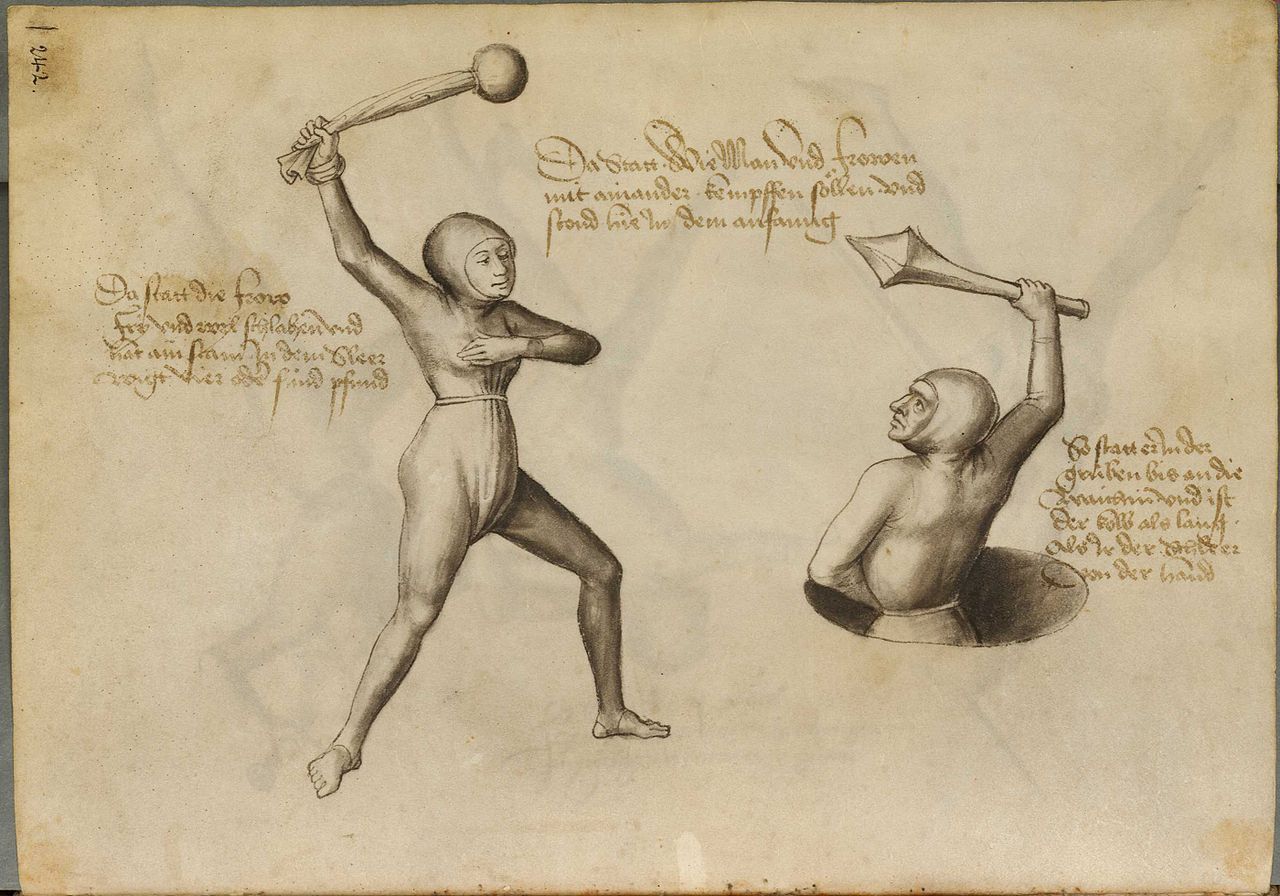 242
Da Statt Wie Man vnd frowen
mit ainander kempffen söllen vnd
stond hie In dem anfanng
Da statt die frow
fry vnd wyl schlahen vnd
hat ain stain In dem Sleer
wigt vier oder fünd pfund
So statt er In der
gruben bis an die
waichin vnd ist
der kolb als lang
als Ir der Schleer
von der hand